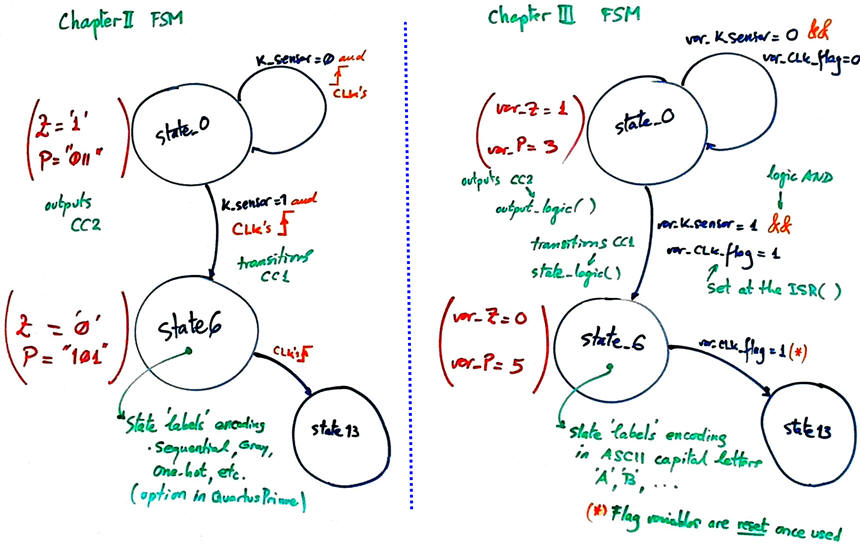 Chapter II FSM
K_sensor = 0 and
CLK's
state_0
Z = '1'
P = "011"
outputs
CC2
K_sensor = 1 and
CLK's
transitions
CC1
state6
Z = '0'
P = "101"
CLK's
state13
State 'labels' encoding
. Sequential, Gray,
One-hot, etc.
(option in Quartus Prime)
Chapter III FSM
var_K_sensor = 0 &&
var_CLK_flag=0
state_0
var_Z = 1
var_P = 3
outputs CC2
output_logic( )
logic AND
var_K_sensor = 1 &&
var_CLK_flag = 1
set at the ISR( )
transitions CC1
state_logic( )
state_6
var_Z = 0
var_P = 5
var_CLK_flag = 1 (*)
state13
State 'labels' encoding
in ASCII capital letters
'A', 'B', ...
(*) Flag variables are reset once used